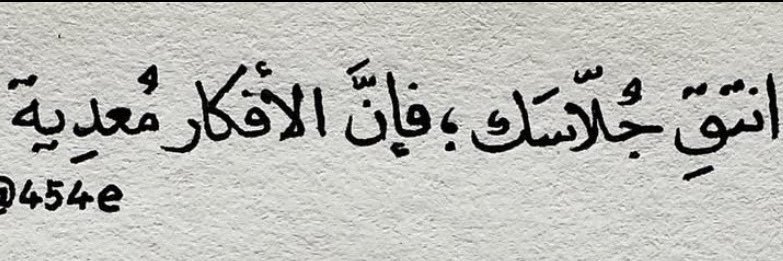 انتقِ جُلّاسَك ؛ فإنَّ الأفكار مُعدِية
@454e